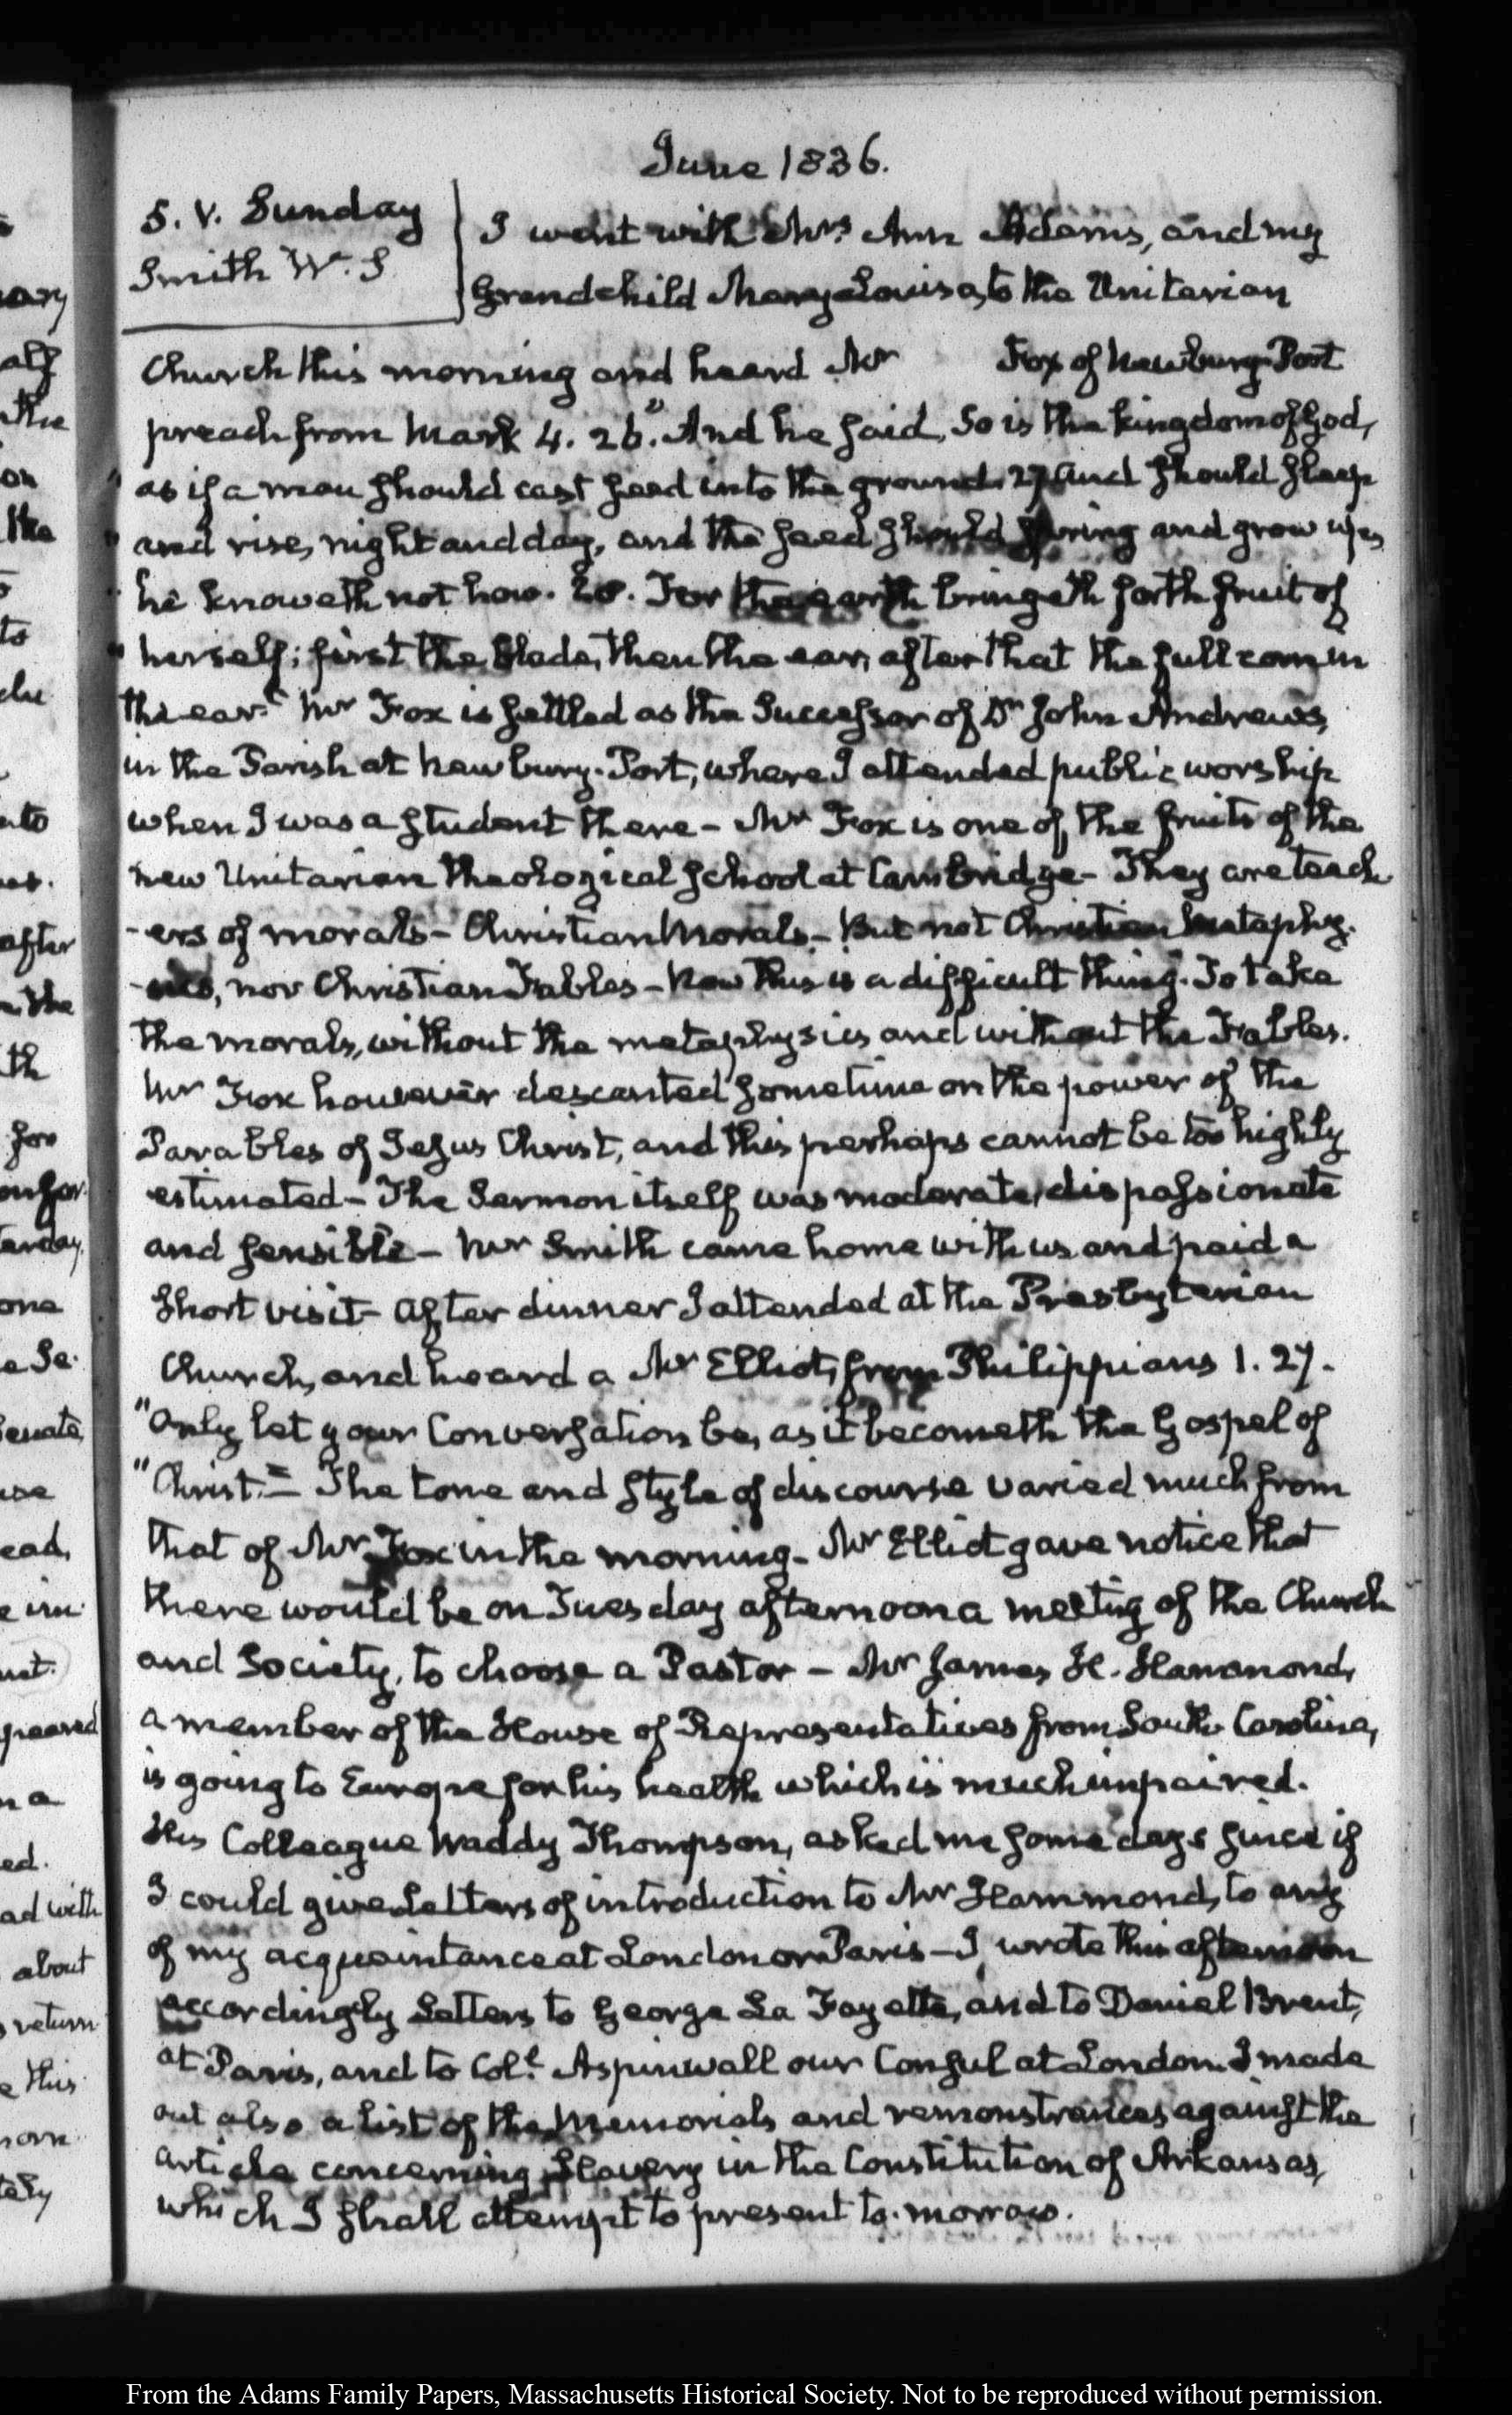 June 1836.
5. V. Sunday
Smith W. S
I went with Mrs Ann Adams, and my
Grandchild Mary-Louisa, to the Unitarian
Church this morning and heard Mr Fox of Newbury-Port
preach from Mark 4. 26. "And he said, So is the kingdom of God,
" as if a man should cast seed into the ground. 27 and should sleep
" and rise, night and day, and the seed should spring and grow up,
" he knoweth not how. 28. For the earth bringeth forth fruit of
" herself; first the blade, then the ear, after that the full corn in
the ear." Mr Fox is settled as the Successor of Dr John Andrews,
in the Parish at Newbury-Port, where I attended public worship
when I was a student there - Mr Fox is one of the fruits of the
new Unitarian Theological School at Cambridge - They are teach
-ers of morals - Christian Morals - But not Christian Metaphy-
-sics, nor Christian Fables - Now this is a difficult thing. To take
the morals, without the metaphysics and without the Fables.
Mr Fox however descanted sometime on the power of the
Parables of Jesus Christ, and this perhaps cannot be too highly
estimated - The Sermon itself was moderate, dispassionate
and sensible - Mr Smith came home with us and paid a
short visit - After dinner I attended at the Presbyterian
Church, and heard a Mr Elliot, from Philippians 1. 27.
"Only let your Conversation be, as it becometh the Gospel of
"Christ." - The tone and style of discourse varied much from
that of Mr Fox in the morning - Mr Elliot gave notice that
there would be on Tuesday afternoon a meeting of the Church
and Society, to choose a Pastor - Mr James H. Hammond,
a member of the House of Representatives from South Carolina,
is going to Europe for his health which is much impaired.
His Colleague Waddy Thompson, asked me some days since if
I could give Letters of introduction to Mr Hammond, to any
of my acquaintance at London or Paris - I wrote this afternoon
accordingly Letters to George La Fayette, and to Daniel Brent,
at Paris, and to Coll. Aspinwall our Consul at London. I made
out also a list of the Memorials and remonstrances against the
article concerning Slavery in the Constitution of Arkansas,
which I shall attempt to present to-morrow.
From the Adams Family Papers, Massachusetts Historical Society. Not to be reproduced without permission.